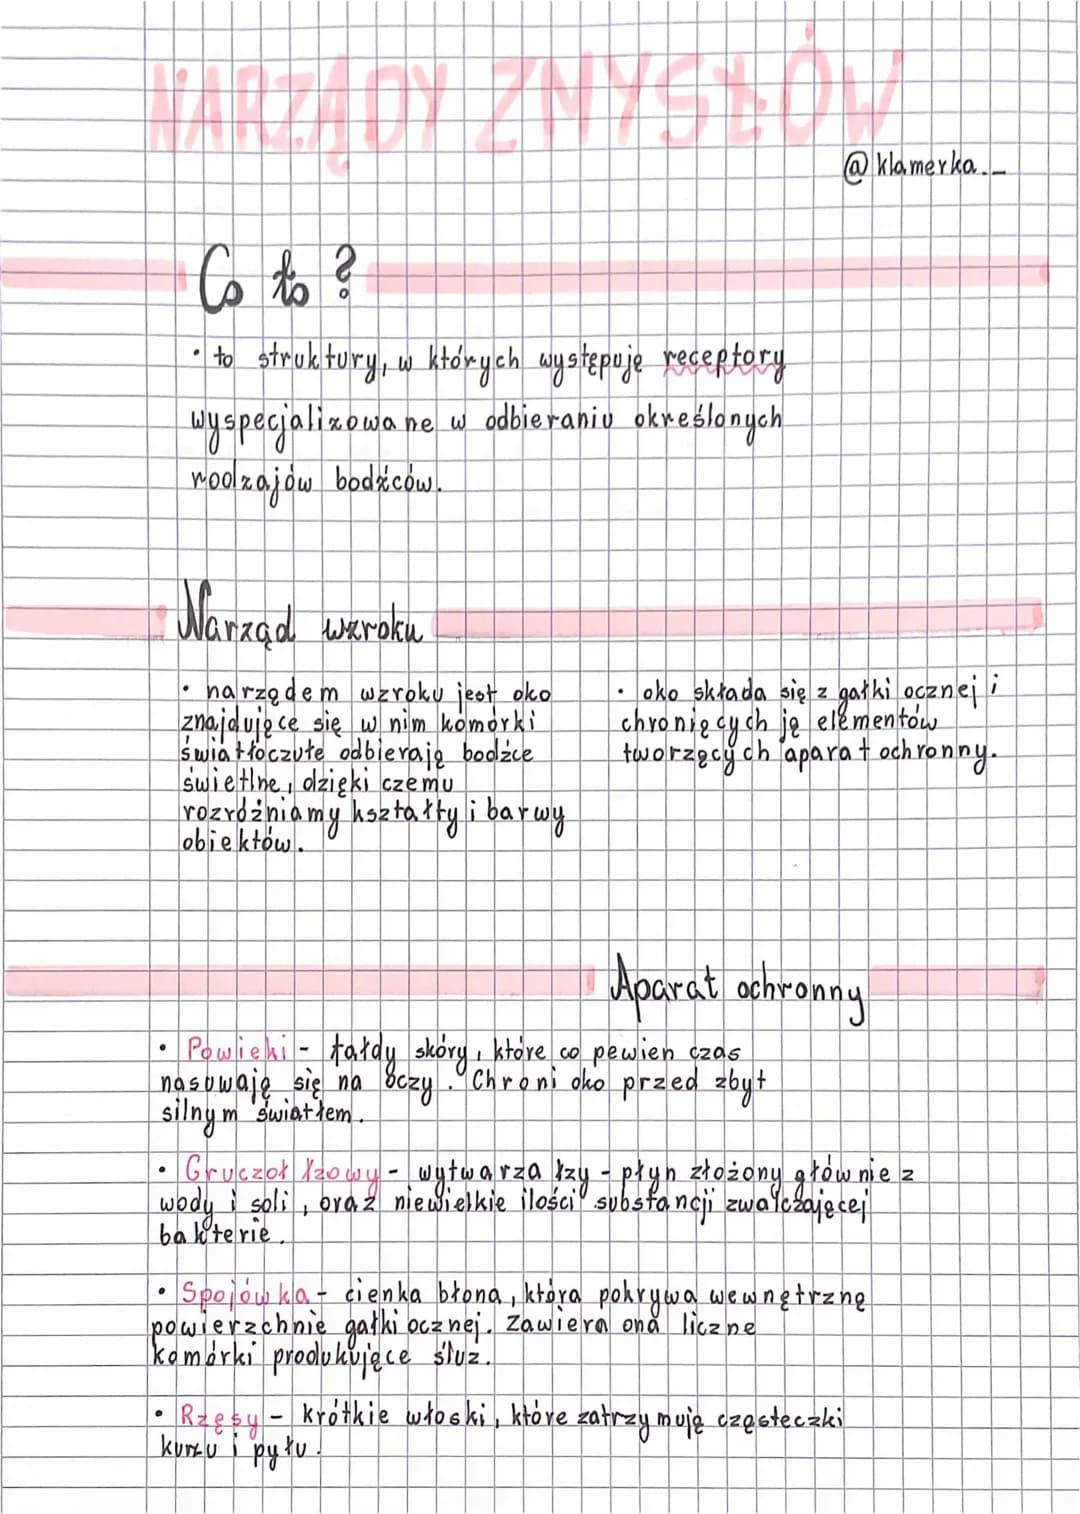 NARZĄDY ZMYSŁÓW
@klamerka._
Co to?
• to struktury, w których występuję receptory
wyspecjalizowane w odbieraniu określonych
rodzajów bodźców.
Narząd wzroku
• narzędem wzroku jest oko
znajdujęce się w nim komórki
światłoczułe odbieraję bodźce
świetlne, dzięki czemu
rozróżniamy kształty i barwy
obiektów.
• oko składa się z gałki ocznej i
chronięcych ję elementów
tworzęcych aparat ochronny.
Aparat ochronny
• Powieki - fałdy skóry, które co pewien czas
nasuwaję się na oczy. Chroni oko przed zbyt
silnym światłem.
• Gruczoł łzowy - wytwarza łzy - płyn złożony głównie z
wody i soli, oraz niewielkie ilości substancji zwalczajęcej
bakterie.
• Spojówka - cienka błona, która pokrywa wewnętrznę
powierzchnię gałki ocznej. Zawiera ona liczne
komórki produkujęce śluz.
• Rzęsy - krótkie włoski, które zatrzymuję częsteczki
kurzu i pyłu.